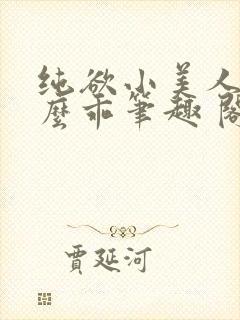 纯欲小美人
麼乖笔趣阁
贾延河